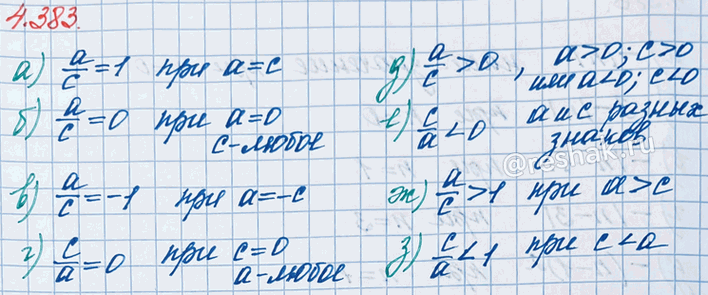 4.383.
а) a/c = 1 при a = c
б) a/c = 0 при a = 0
c - любое
в) a/c = -1 при a = -c
г) c/a = 0 при c = 0
a - любое
д) a/c > 0, a > 0; c > 0
или a < 0; c < 0
е) c/a < 0 a и c разных
знаков
@reshak.ru
ж) a/c > 1 при a > c
з) c/a < 1 при c < a